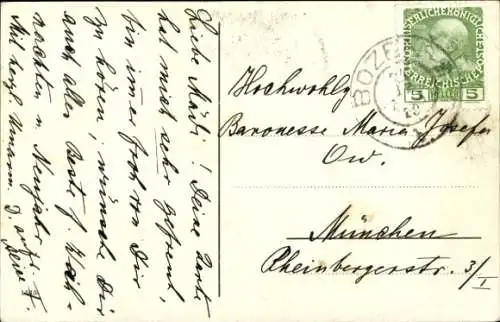 Liebe Mädi! Deine Karte
hat mich sehr gefreut,
bin immer froh von Dir
zu hören; wünsche Dir
auch alles Beste f. Weih-
nachten u. Neujahr.
Mit herzl. Umarm.
Deine
KAISERLICHE KÖNIGLICHE
ÖSTERREICHISCHE
5 5
BOZEN
Hochwohlg
Baronesse Maria Josefa
Ow.
München
Rheinbergerstr. 3/I